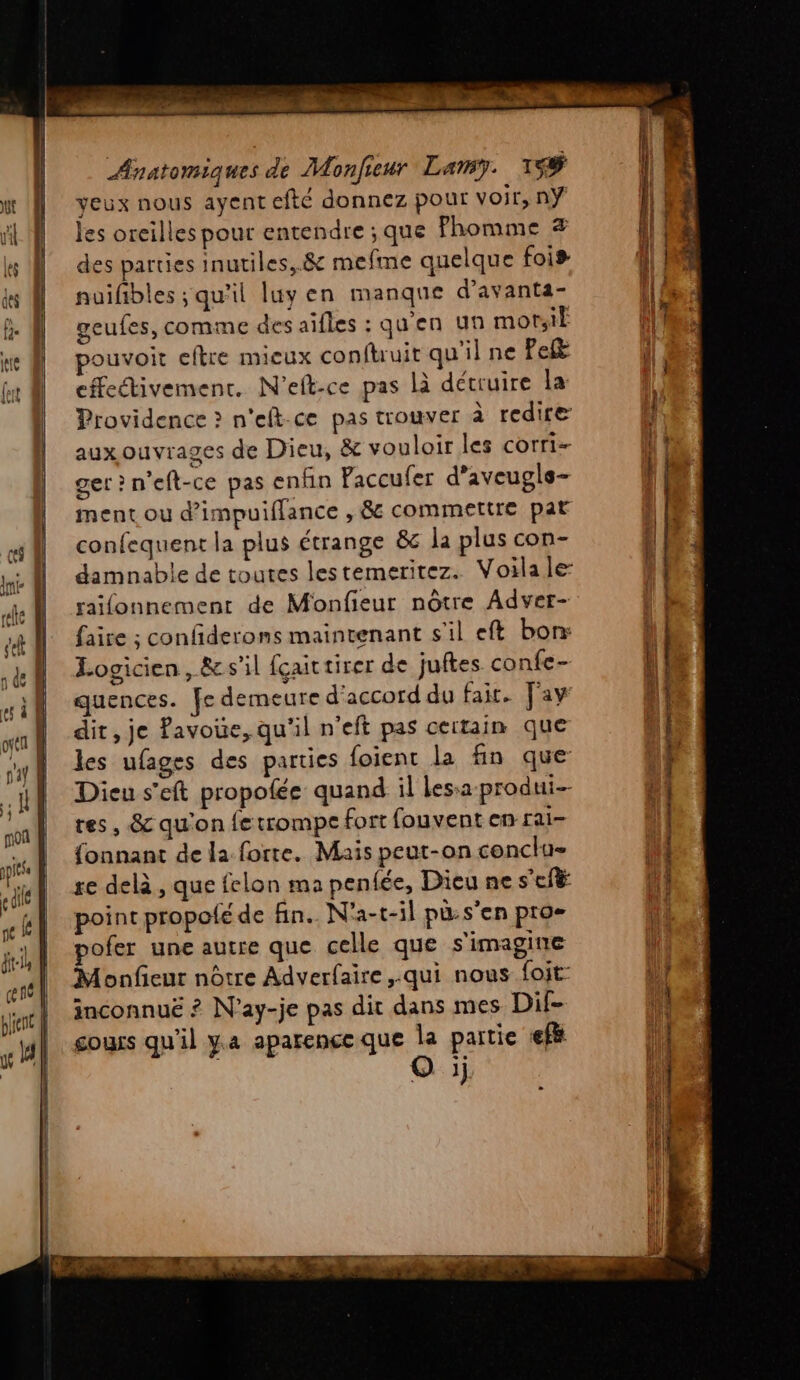 Anatomiques de Monſieur Lamy.
yeux nous ayent eſté donnez pour voir, ny
les oreilles pour entendre ; que l'homme a
des parties inutiles, & meſme quelque fois
nuiſibles ; qu'il luy en manque d'avanta-
geuſes, comme des aiſles : qu'en un mot, il
pouvoit eſtre mieux conſtruit qu'il ne l'eſt
effectivement. N'eſt-ce pas là détruire la
Providence ? n'eſt-ce pas trouver à redire
aux ouvrages de Dieu, & vouloir les corri-
ger ? n'eſt-ce pas enfin l'accuſer d'aveugle-
ment ou d'impuiſſance , & commettre par
conſequent la plus étrange & la plus con-
damnable de toutes les temeritez. Voila le
raiſonnement de Monſieur nôtre Adver-
ſaire ; conſiderons maintenant s'il eſt bon
Logicien , & s'il ſçait tirer de juſtes conſe-
quences. Je demeure d'accord du fait. J'ay
dit, je l'avoüe, qu'il n'eſt pas certain que
les uſages des parties ſoient la fin que
Dieu s'eſt propoſée quand il les a produi-
tes , & qu'on ſe trompe fort ſouvent en rai-
ſonnant de la ſorte. Mais peut-on conclu-
re delà , que ſelon ma penſée, Dieu ne s'eſt
point propoſé de fin. N'a-t-il pû s'en pro-
poſer une autre que celle que s'imagine
Monſieur nôtre Adverſaire , qui nous ſoit
inconnuë ? N'ay-je pas dit dans mes Diſ-
cours qu'il y a aparence que la partie eſt
O ij